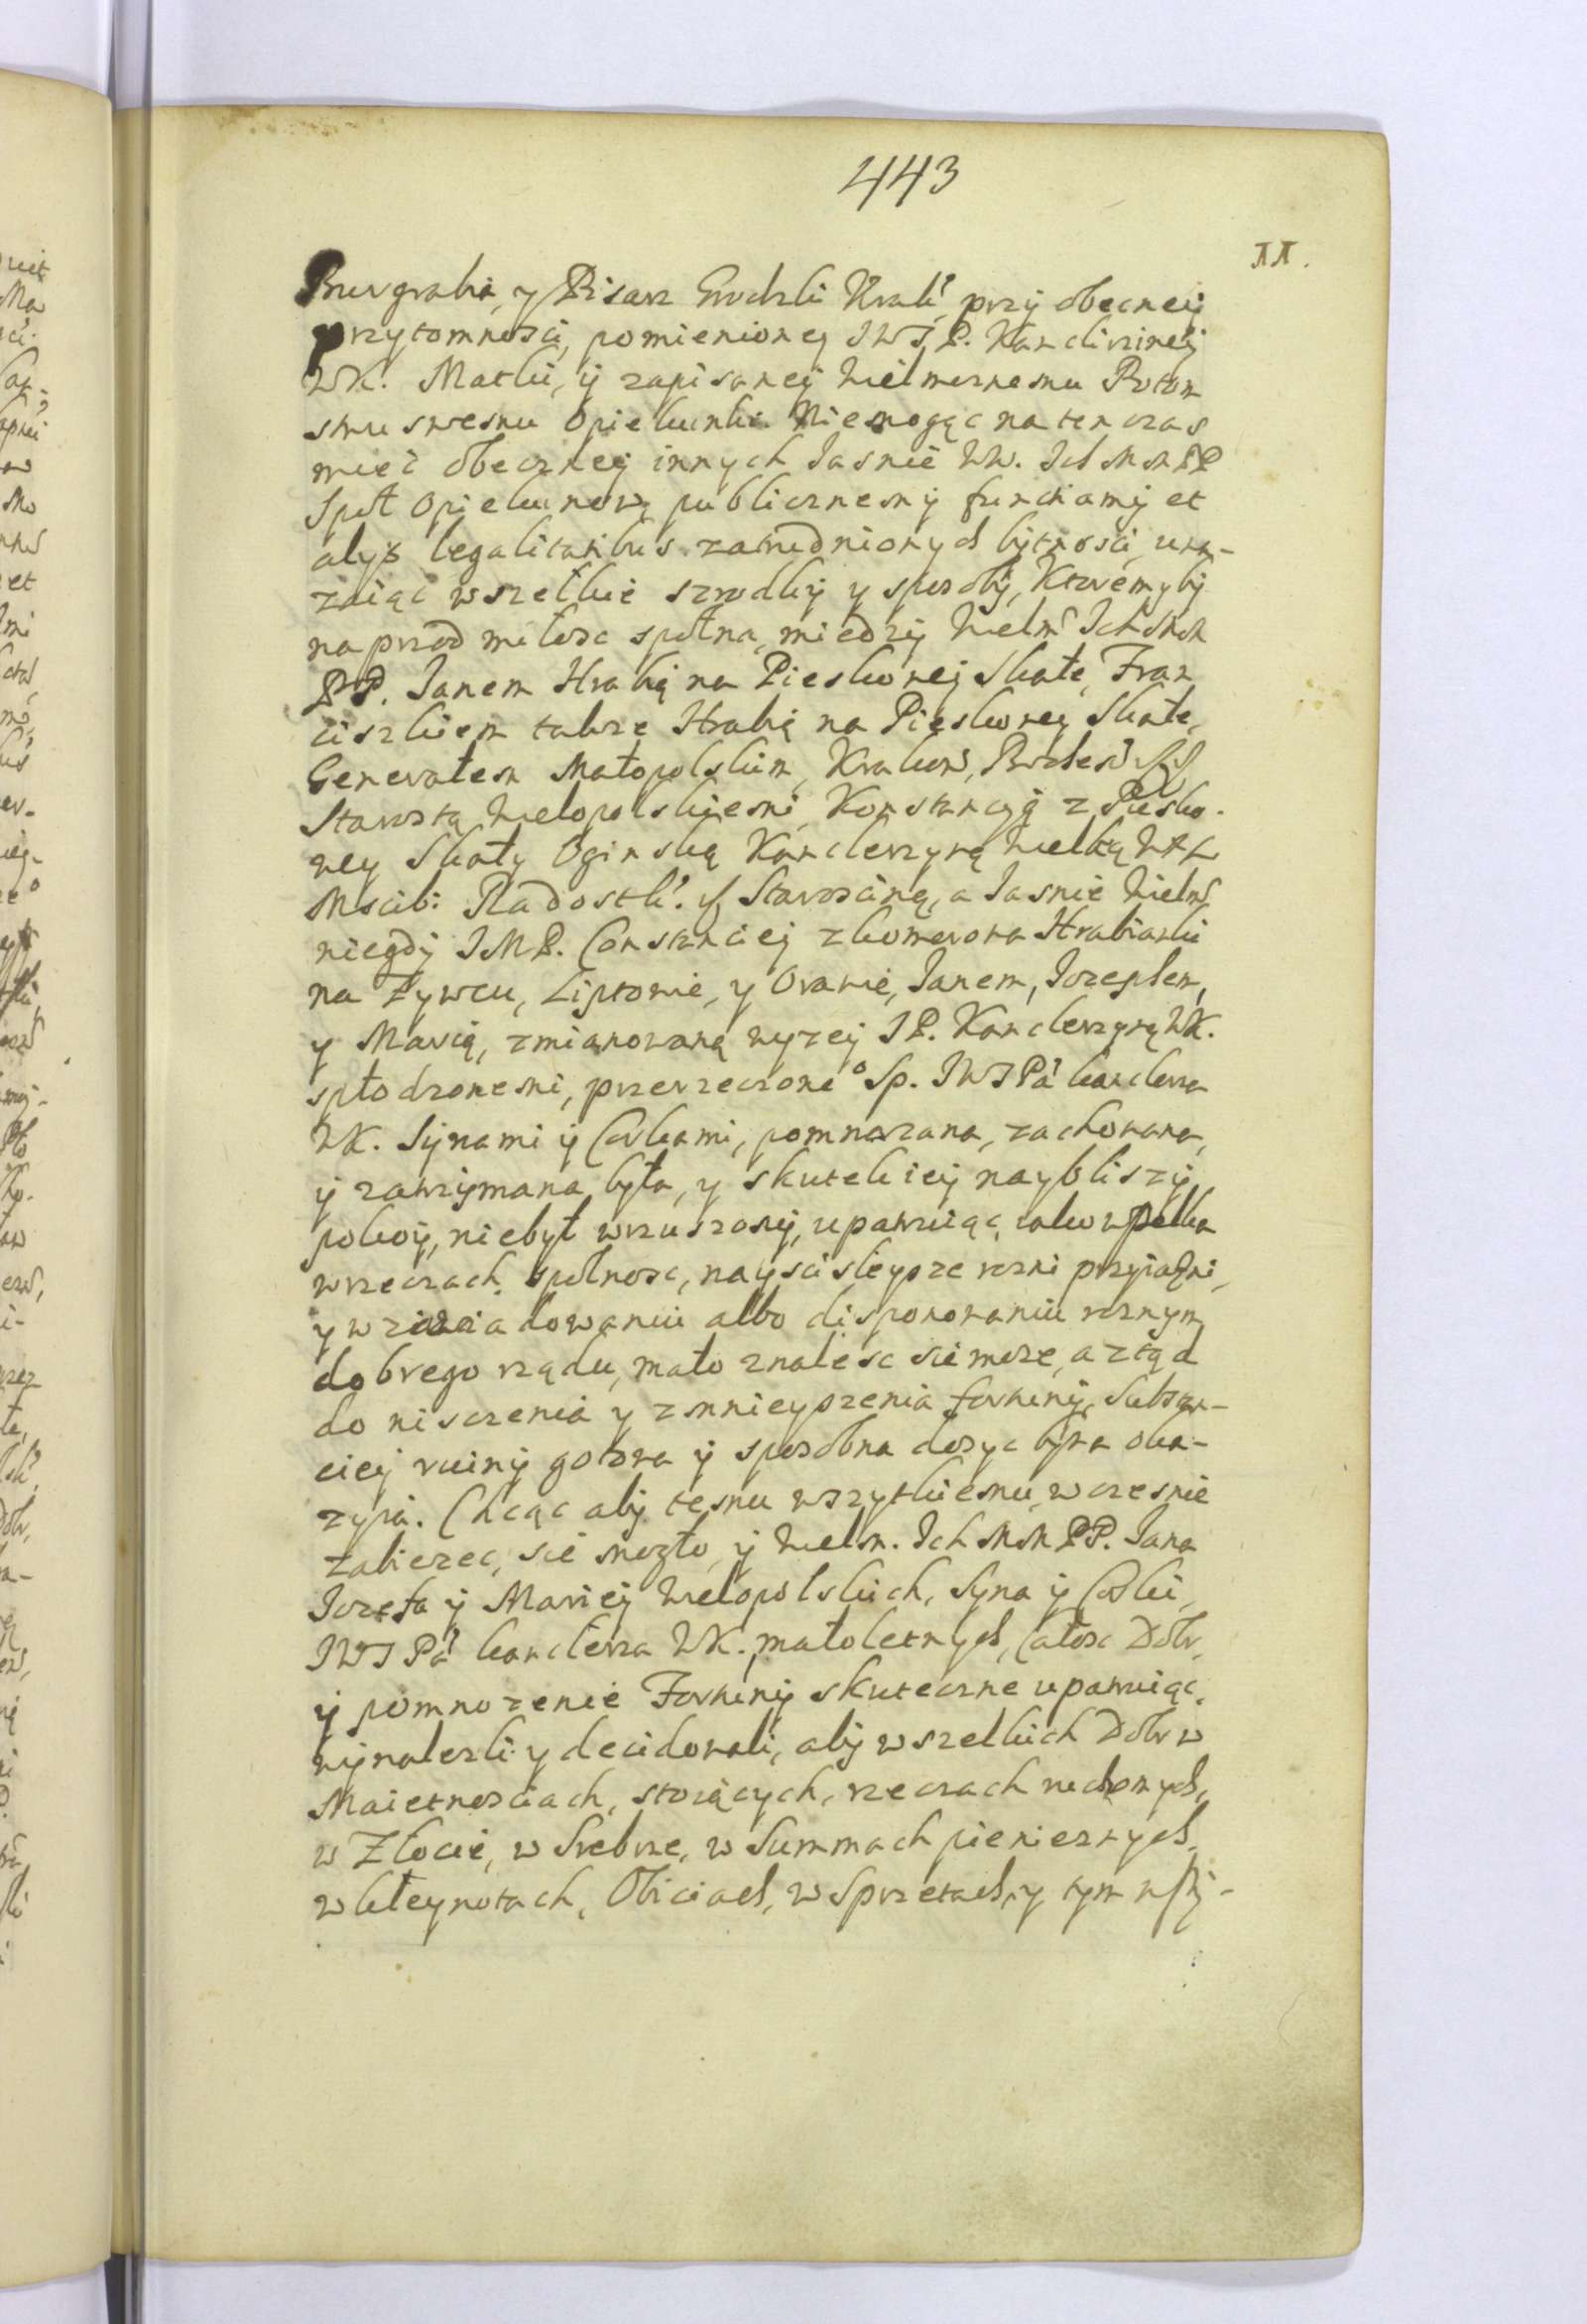 443
11.
Burgrabia, y Pisarz Grodzki Krak: przÿ obecneÿ
przytomnosci, pomienioneÿ JWJP. Kanclirzineÿ
WK. Matki, ÿ zapisaneÿ Wielmoznemu Potom
stwu swemu Opiekunki. Niemogąc na ten czas
mieć obeczneÿ innych Jasnie WW. Ich Mm PP
Społ Opiekunow, publicznemÿ funckiamÿ et
alÿs legalitatibus zatrudnionych bÿtnosci, uwa-
zaiąc wszelkie szrodkÿ y sposobÿ, Ktoremybÿ
naprzod miłosc społna, miedzÿ Wielm Ich Mm
PP. Janem Hrabią na Pieskoweÿ Skale, Fran
ciszkiem takze Hrabią na Pieskoweÿ Skale,
Generałem Małopolskim, Krakow,
Starostą Wielopolskiemi, Konstancÿą z Piesko-
wey Skały Oginską Kanclerzyną Wielką WXL
Mscib: Radoszk: Starosciną, a Jasnie Wielm
niegdÿ JMP. Constanciej z Komorowa Hrabianki
na Zywcu, Liptowie, y Orawie, Janem, Jozephem,
y Marią, zmianowaną wyzeÿ JP. Kanclerzyną WK.
spłodzonemi, przerzeczone° Sp. JWJPa Kanclerza
WK. Sÿnami ÿ Corkami, pomnazana, zachowana,
ÿ zatrzÿmana była, y skutek ieÿ naybliszÿ
pokoÿ, niebył wzruszonÿ, upatruiąc iako wpolka
wrzeczach społnosc, nayscisleysze rozni przyiazni,
y w albo disponowaniu roznym
dobrego rządu, mało znalesc sie moze, a ztąd
do nisczenia y zmnieyszenia fortunÿ, Substan-
cieÿ ruinÿ gotowa ÿ sposobna dosyc bÿwa oka-
zyia. Chcąc abÿ temu wszytkiemu, wczesnie
zabiezec, sie mogło, ÿ Wielm. Ich Mm PP. Jana
Jozefa ÿ Marieÿ Wielopolskich, Syna ÿ Corki,
JWJPa Kanclerza WK. małoletnych, całosc Dobr,
ÿ pomnozenie Fortunÿ skuteczne upatruiąc,
wÿnalezli y decidowali, abÿ wszelkich Dobr w
Maietnosciach, stoiących, rzeczach ruchomych,
w Złocie, w Srebrze, w Summach pienieznych,
w Kleynotach, Obiciach, w Sprzetach, y tym